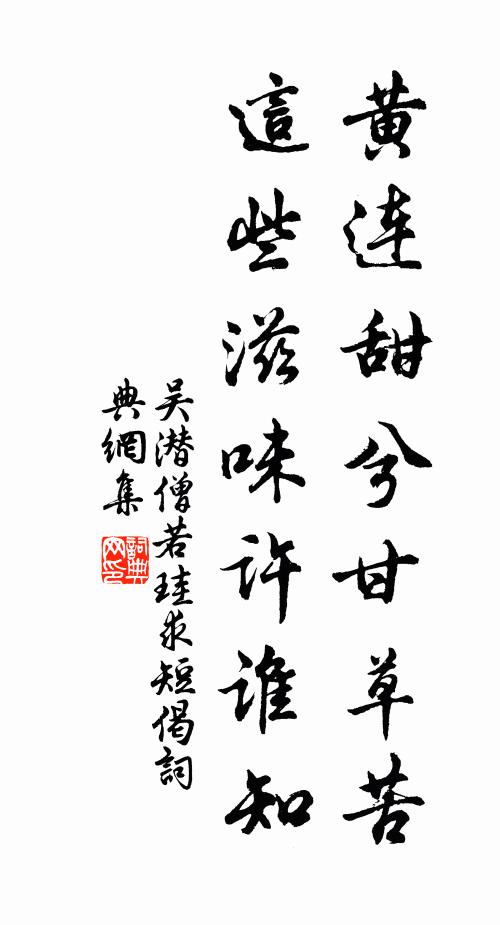 黄連甜兮甘草苦
這些滋味許誰知
吴潜僧若珪求短偈詞
典網集
詞典
网印